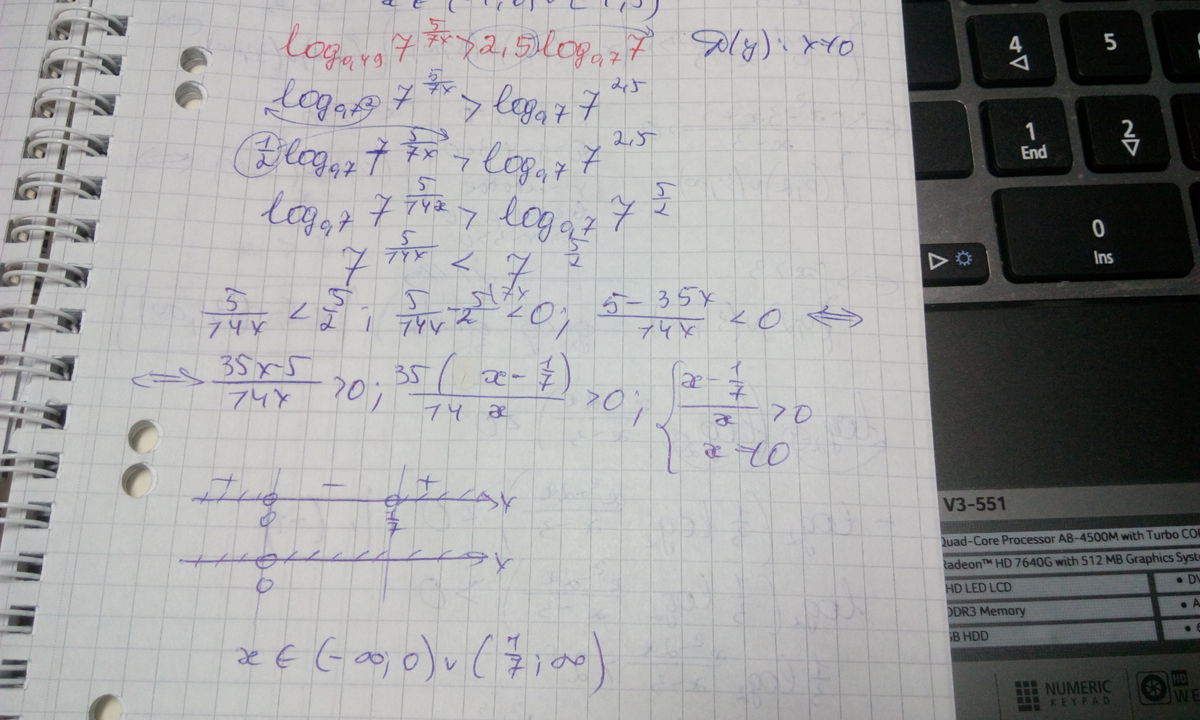 x ∈ (-1; 0) ∪ (1; 3)
log₀,₄₉ 7^(5/7x) > 2,5 log₀,₇ 7 D(y): x≠0
log₀,₇² 7^(5/7x) > log₀,₇ 7^2,5
1/2 log₀,₇ 7^(5/7x) > log₀,₇ 7^2,5
log₀,₇ 7^(5/14x) > log₀,₇ 7^(5/2)
7^(5/14x) < 7^(5/2)
5/14x < 5/2 ; 5/14x - 5/2 < 0 ; (5 - 35x)/14x < 0 ⇔
⇔ (35x-5)/14x > 0 ; 35(x - 1/7)/14x > 0 ; { (x - 1/7)/x > 0
x ≠ 0
+ - +
0 1/7 x
0 x
x ∈ (-∞; 0) ∪ (1/7; ∞)
4
5
1
End
2
0
Ins
V3-551
Quad-Core Processor A8-4500M with Turbo CO
Radeon™ HD 7640G with 512 MB Graphics Syste
HD LED LCD • DV
DDR3 Memory • A
GB HDD
NUMERIC
KEYPAD
HD
WE